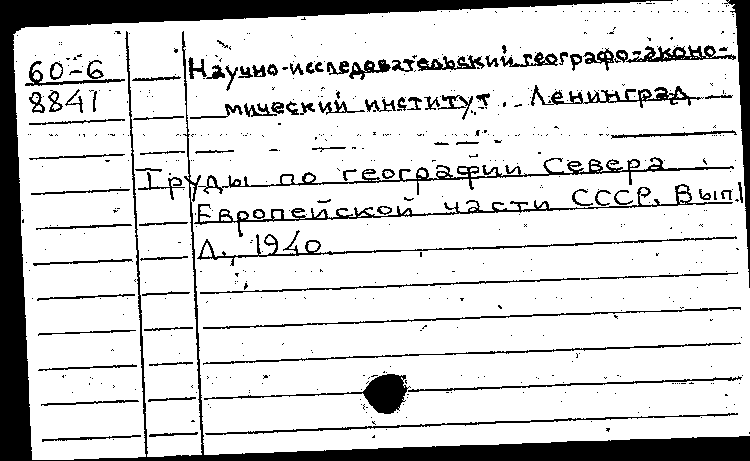 60-6
8841
Научно-исследовательский географо-эконо-
мический институт. Ленинград
Труды по географии Севера
Европейской части СССР. Вып.1
Л., 1940